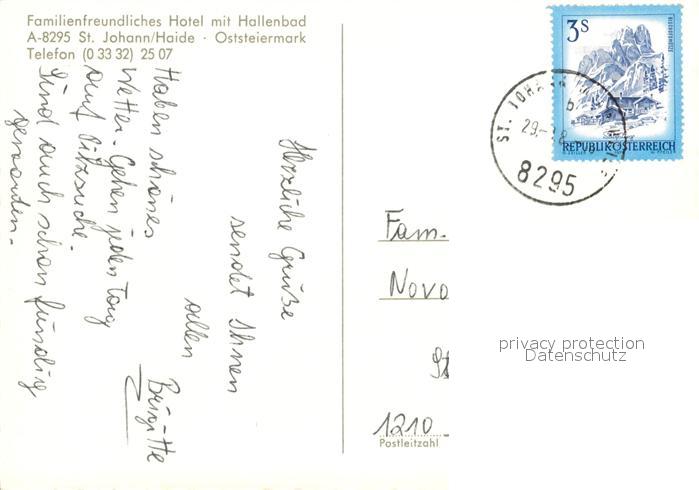 Familienfreundliches Hotel mit Hallenbad
A-8295 St. Johann/Haide · Oststeiermark
Telefon (0 33 32) 25 07
Herzliche Grüße
sendet Ihnen
allen
Brigitte
Haben schönes
Wetter. Gehen jeden Tag
auf Pilzsuche.
Sind auch schon fündig
geworden.
3S
REPUBLIK ÖSTERREICH
ST. JOHA
29.-
8295
Fam.
Novo
St
1210
Postleitzahl
privacy protection
Datenschutz